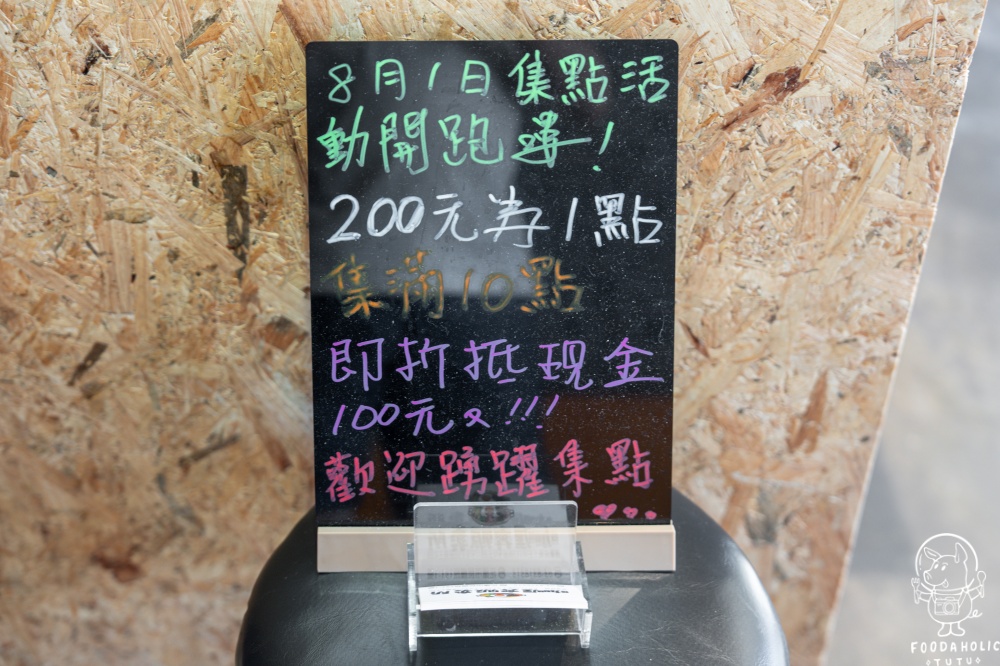 8月1日集點活
動開跑囉!
200元為1點
集滿10點
即折抵現金
100元又!!!
歡迎踴躍集點
FOODAHOLIC
TUTU